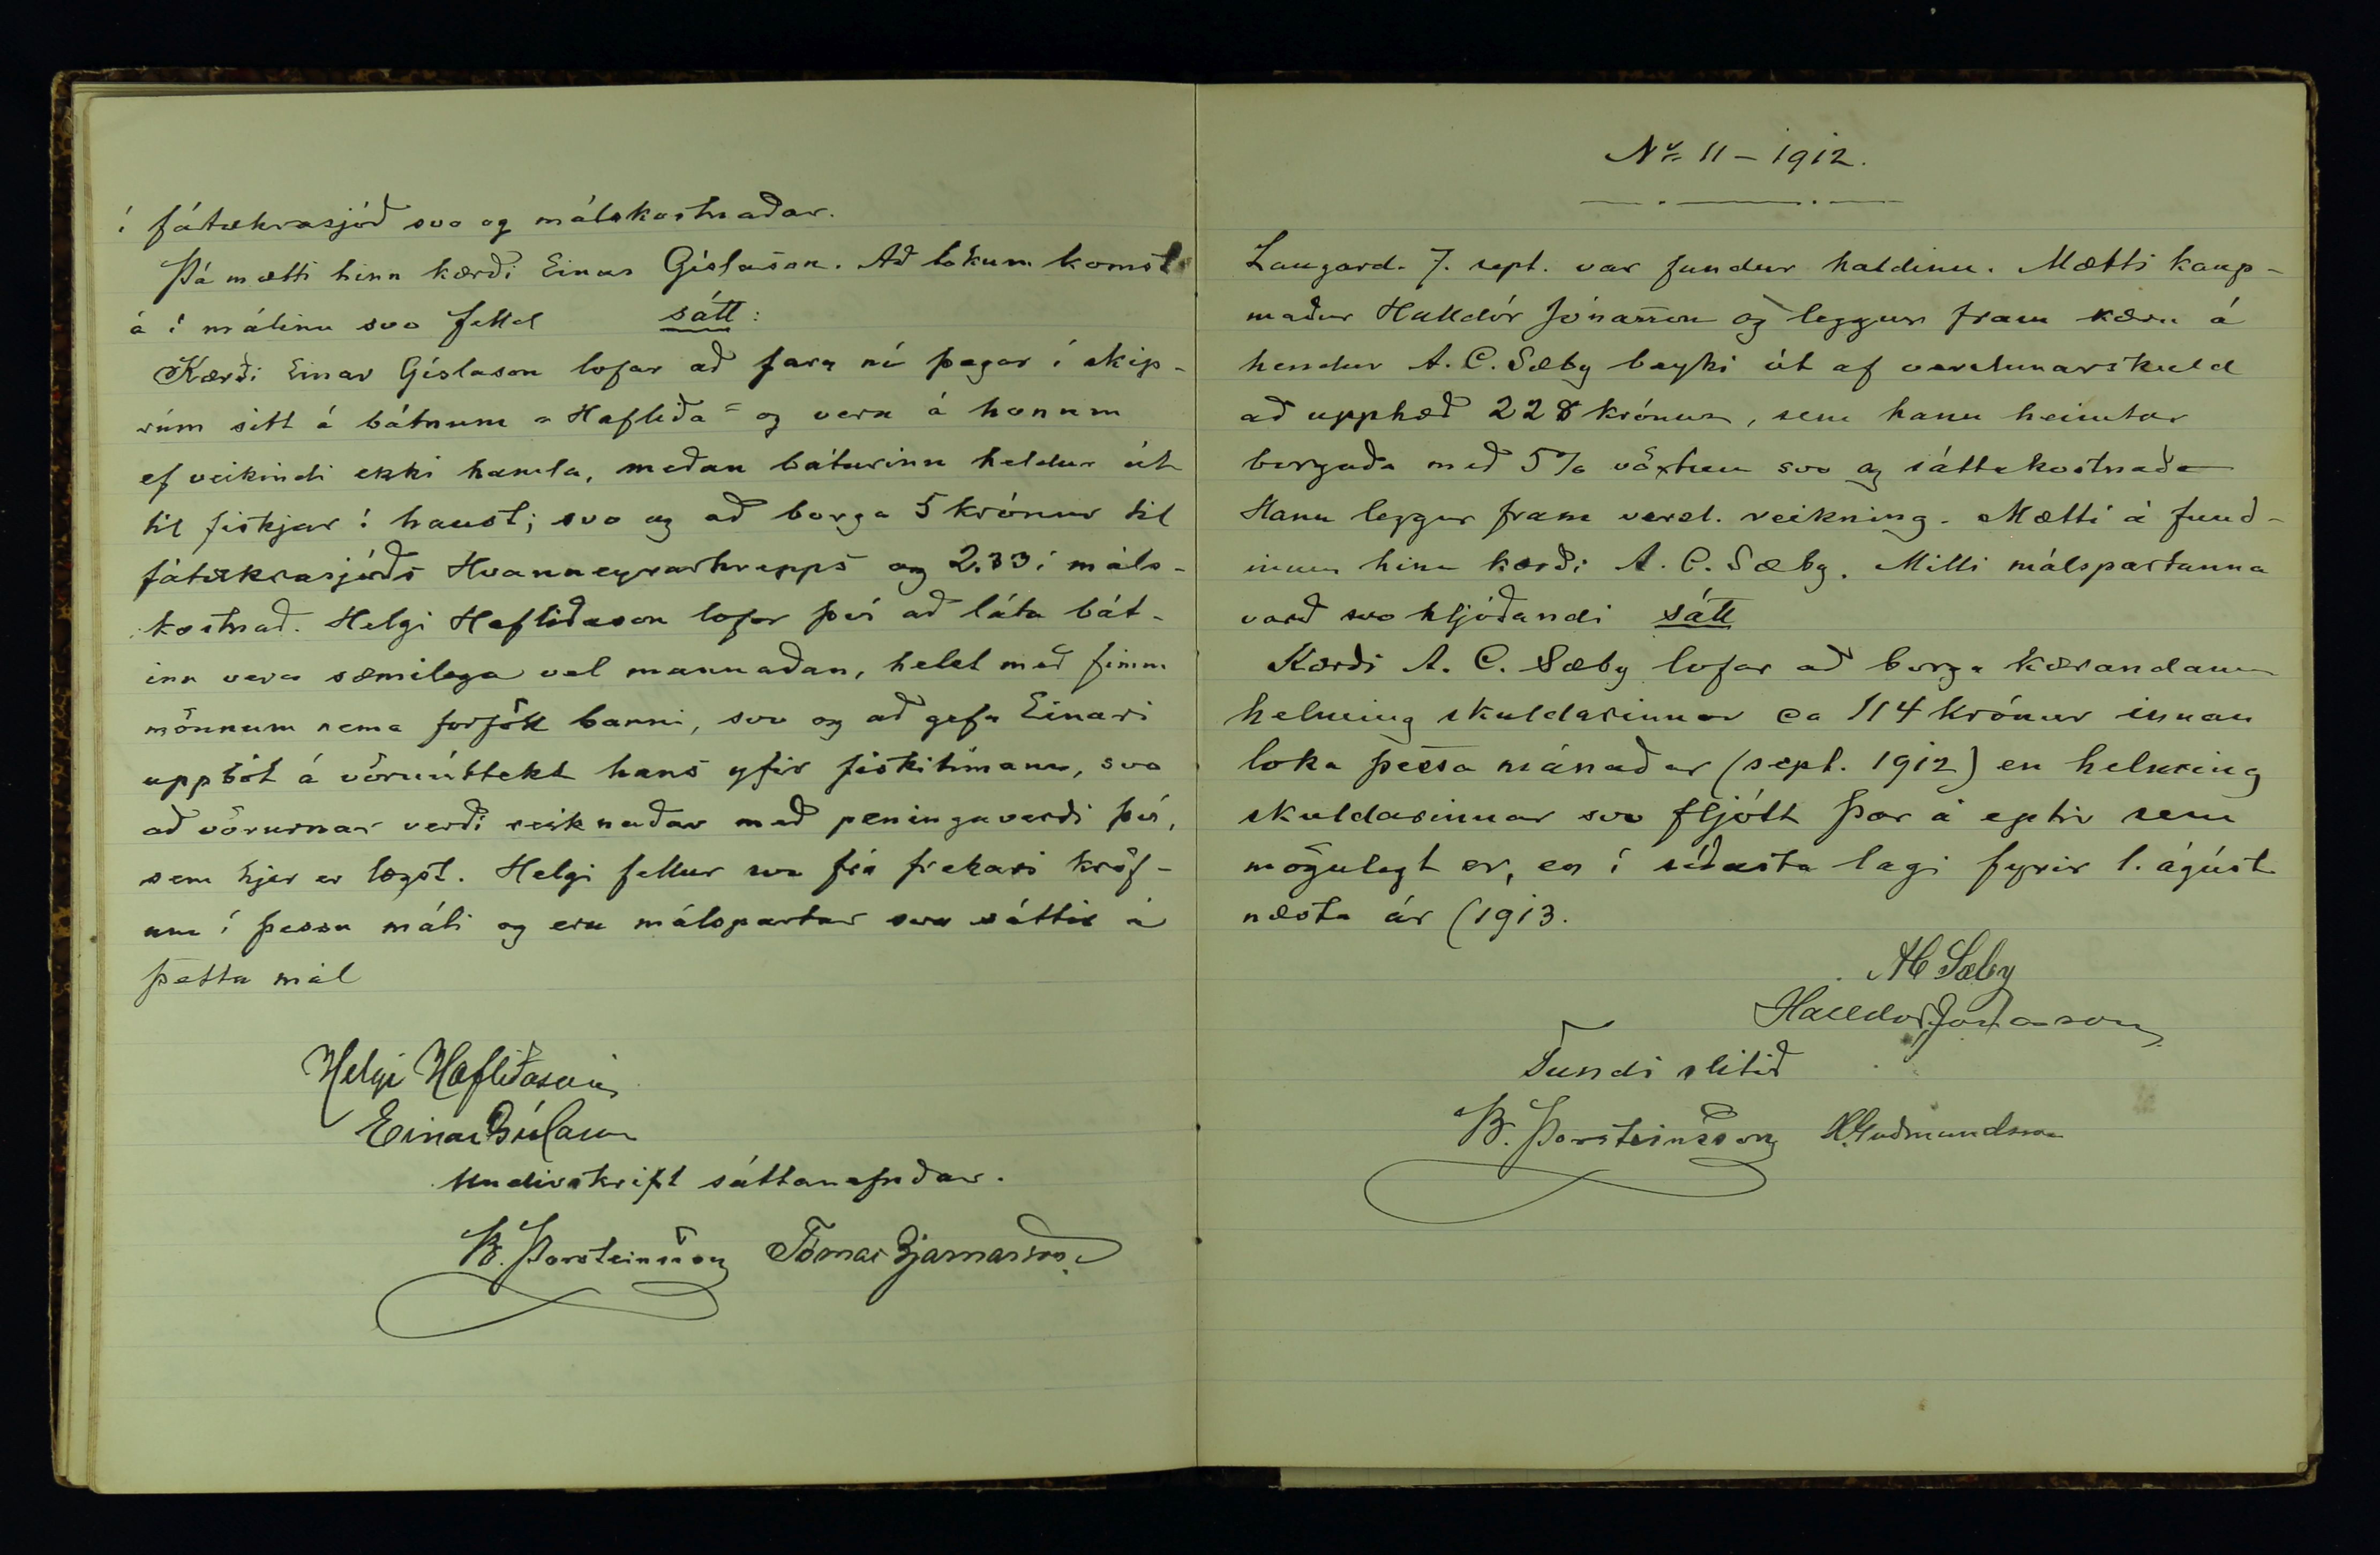 í fátækrasjóð svo og málskostnaðar.
Þá mætti hinn kærði Einar Gíslason. Að lokum komst
á í málinu svo felld sátt:
Kærði Einar Gíslason lofar að fara nú þegar í skip-
rúm sitt á bátnum „Hafliða“ og vera á honum
ef veikindi ekki hamla, meðan báturinn heldur út
til fiskjar í haust; svo og að borga 5 krónur til
fátækrasjóðs Hvanneyrarhrepps og 2.33 í máls-
kostnað. Helgi Hafliðason lofar því að láta bát-
inn vera sæmilega vel mannaðan, helst með fimm
mönnum nema forföll banni, svo og að gefa Einari
uppbót á vöruúttekt hans yfir fiskitímann, svo
að vörurnar verði reiknaðar með peningaverði því,
sem hjer er lægst. Helgi fellur svo frá frekari kröf-
um í þessu máli og eru málspartar svo sáttir á
þetta mál
Helgi Hafliðason
Einar Gíslason
Undirskrift sáttanefndar.
B. Þorsteinsson Tómas Bjarnason
Nr. 11 – 1912.
Laugard. 7. sept. var fundur haldinn. Mætti kaup-
maður Halldór Jónasson og leggur fram kæru á
hendur A. C. Sæby beyki út af verslunarskuld
að upphæð 228 krónur, sem hann heimtar
borgaða með 5% vöxtum svo og sáttakostnaða
Hann leggur fram versl. reikning. Mætti á fund-
inum hinn kærði A. C. Sæby. Milli málspartanna
varð svo hljóðandi sátt
Kærði A. C. Sæby lofar að borga kærandanum
helming skuldarinnar ca 114 krónur innan
loka þessa mánaðar (sept. 1912) en helming
skuldarinnar svo fljótt þar á eptir sem
mögulegt er, en í síðasta lagi fyrir 1. ágúst
næsta ár (1913.
AC Sæby
Halldór Jónasson
Fundi slitið
B. Þorsteinsson H. Guðmundsson